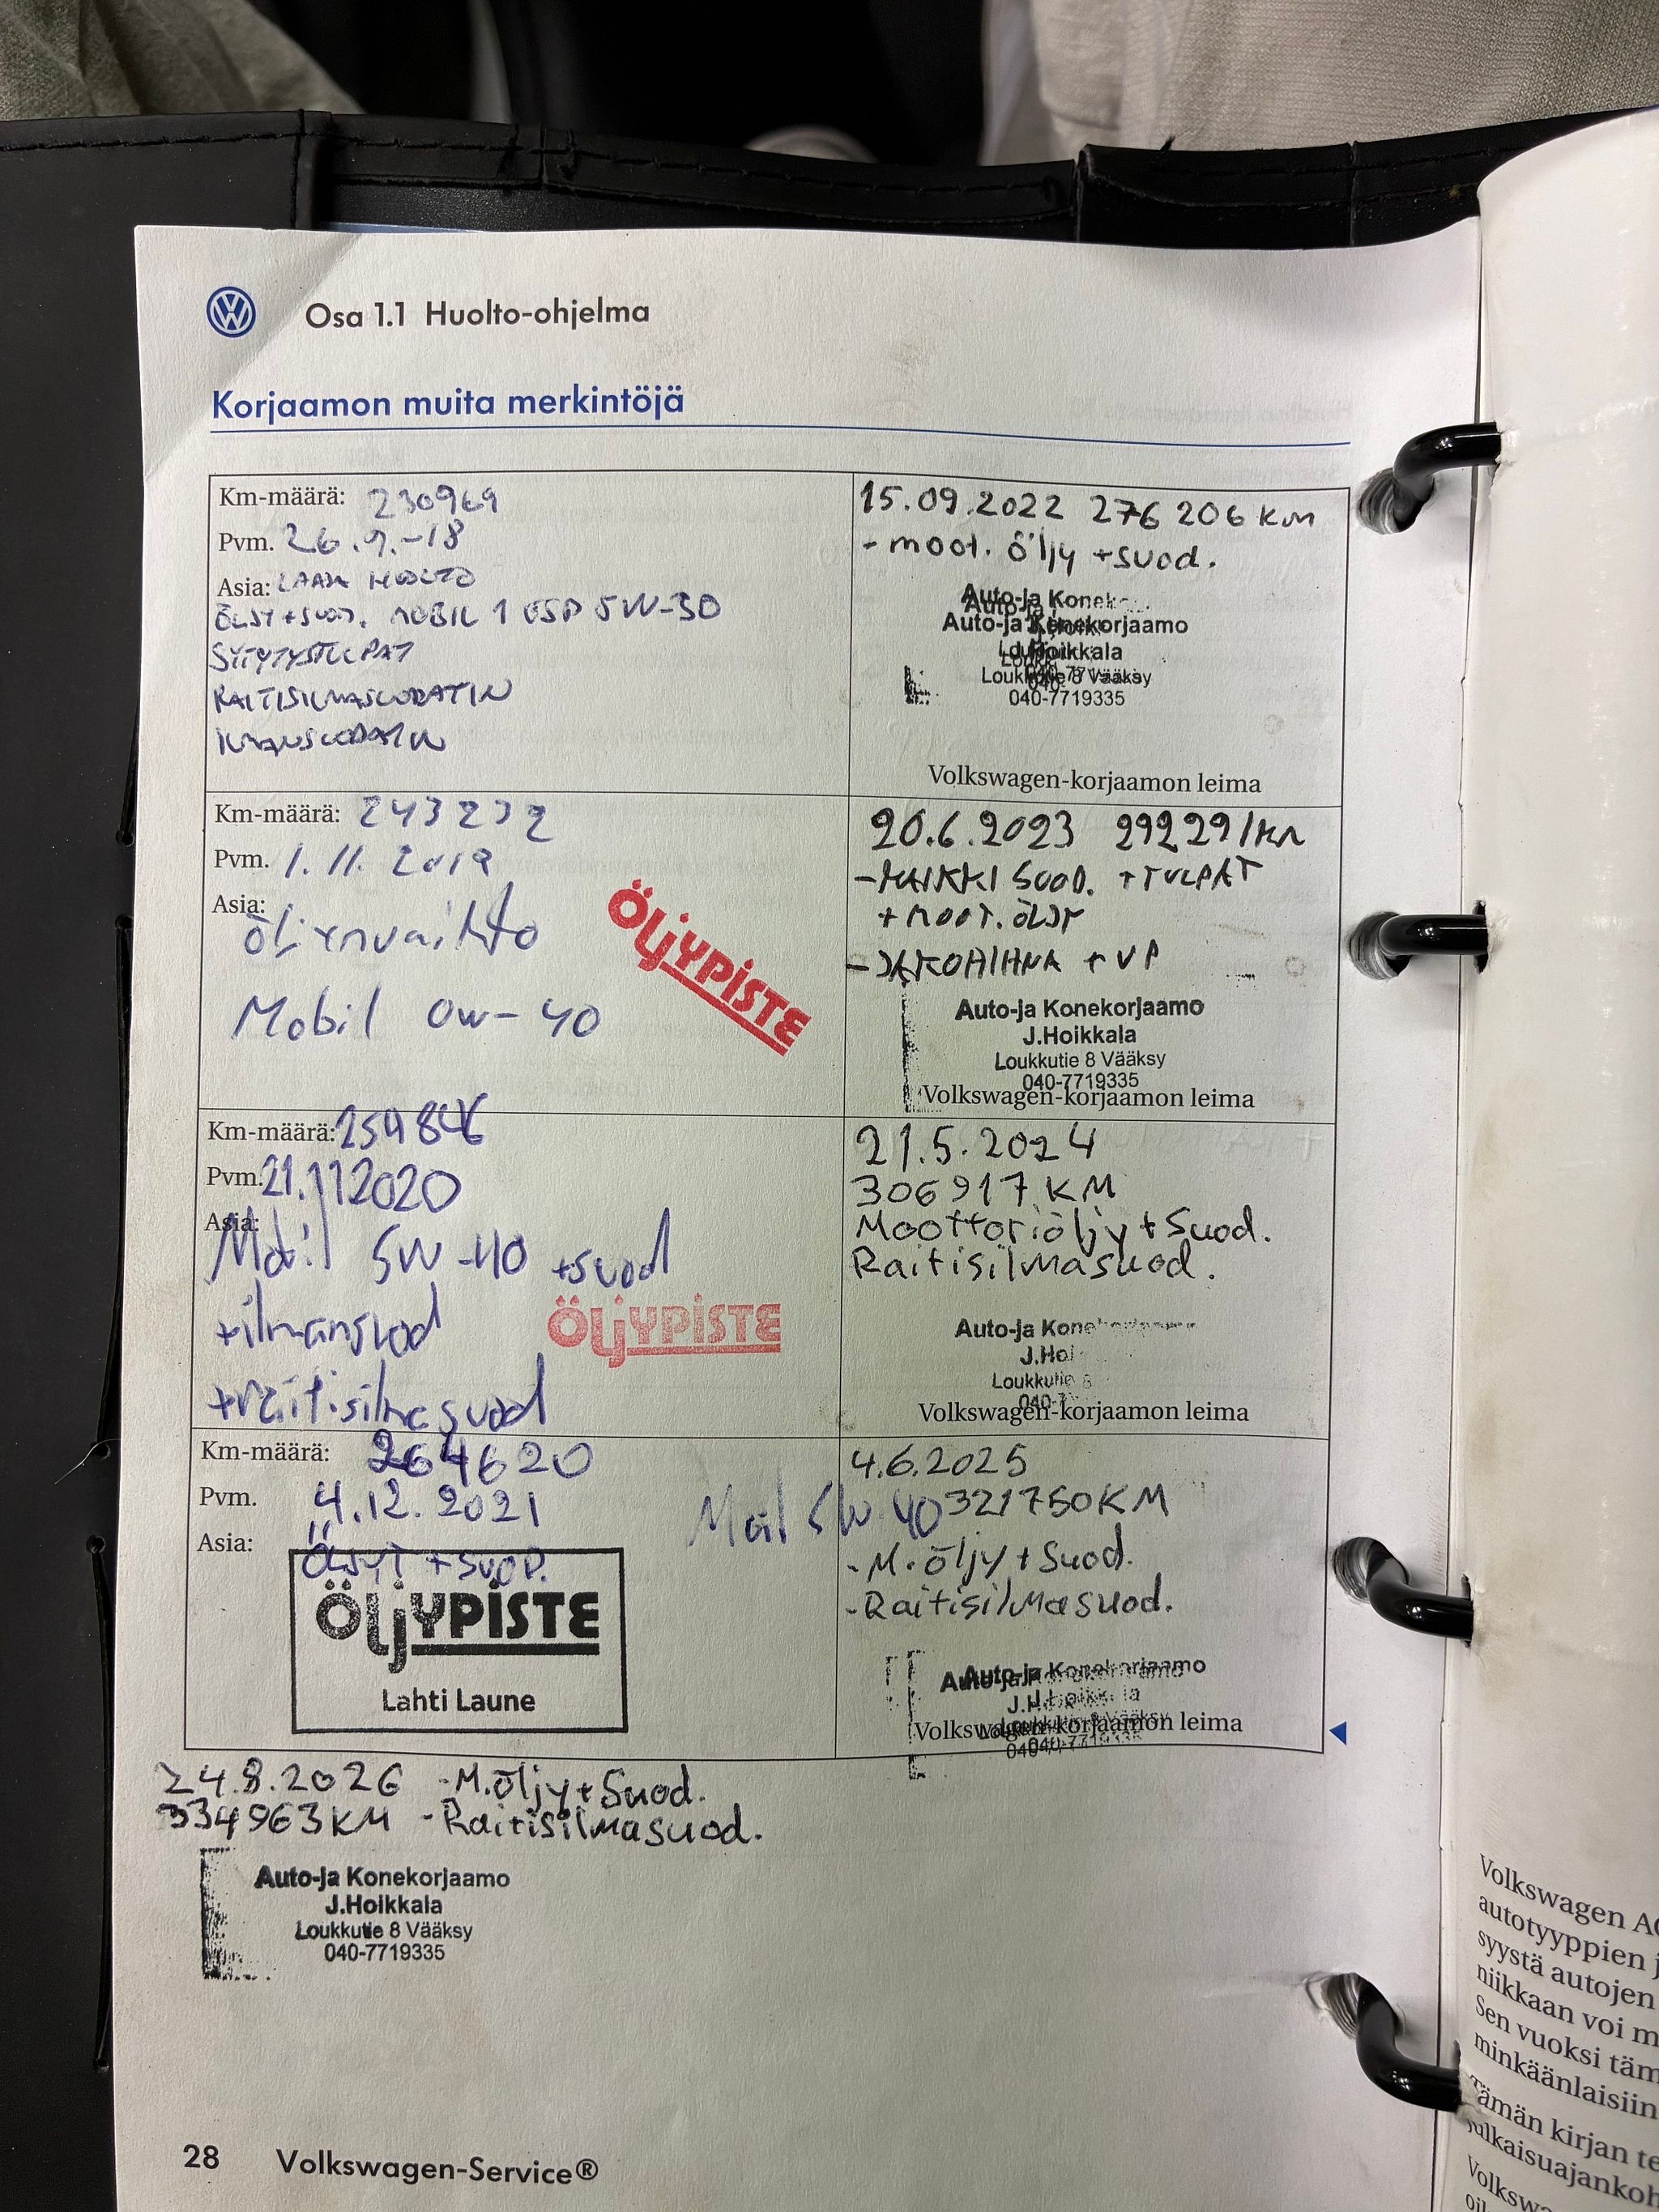 Osa 1.1 Huolto-ohjelma
Korjaamon muita merkintöjä
Km-määrä: 230969
Pvm. 26.9.-18
Asia: LAAJA HUOLTO
ÖLJY+SUOD. MOBIL 1 ESP 5W-30
SYTYTYSTULPAT
RAITISILMASUODATIN
ILMANSUODATIN
15.09.2022 276 206 KM
- moot. öljy +suod.
Auto-ja Konekorjaamo
J.Hoikkala
Loukkutie 8 Vääksy
040-7719335
Volkswagen-korjaamon leima
Km-määrä: 243232
Pvm. 1.11.2019
Asia:
öljynvaihto
Mobil 0w-40
ÖLJYPISTE
20.6.2023 292291km
-KAIKKI SUOD. +TULPAT
+ MOOT.ÖLJY
-JAKOHIHNA + VP
Auto-ja Konekorjaamo
J.Hoikkala
Loukkutie 8 Vääksy
040-7719335
Volkswagen-korjaamon leima
Km-määrä: 254846
Pvm. 21.112020
Asia:
Mobil 5W-40 +suod
+ilmansuod
+raitisilmasuod
ÖLJYPISTE
21.5.2024
306917 KM
Moottoriöljy+Suod.
Raitisilmasuod.
Auto-ja Konekorjaamo
J.Hoi
Loukkutie 8
040-7
Volkswagen-korjaamon leima
Km-määrä: 264620
Pvm. 4.12.2021
Asia:
ÖLJYT +SUOD.
5W 40
ÖLJYPISTE
Lahti Laune
4.6.2025
321750KM
-M.öljy+Suod.
-Raitisilmasuod.
Auto-ja Konekorjaamo
J.Hoikkala
Loukkutie 8 Vääksy
040-7719335
Volkswagen-korjaamon leima
24.8.2026 -M.öljy+Suod.
334963KM -Raitisilmasuod.
Auto-ja Konekorjaamo
J.Hoikkala
Loukkutie 8 Vääksy
040-7719335
28 Volkswagen-Service®
Volkswagen AG
autotyyppien j
syystä autojen
niikkaan voi m
Sen vuoksi täm
minkäänlaisiin
Tämän kirjan te
julkaisuajankoh
Volksw